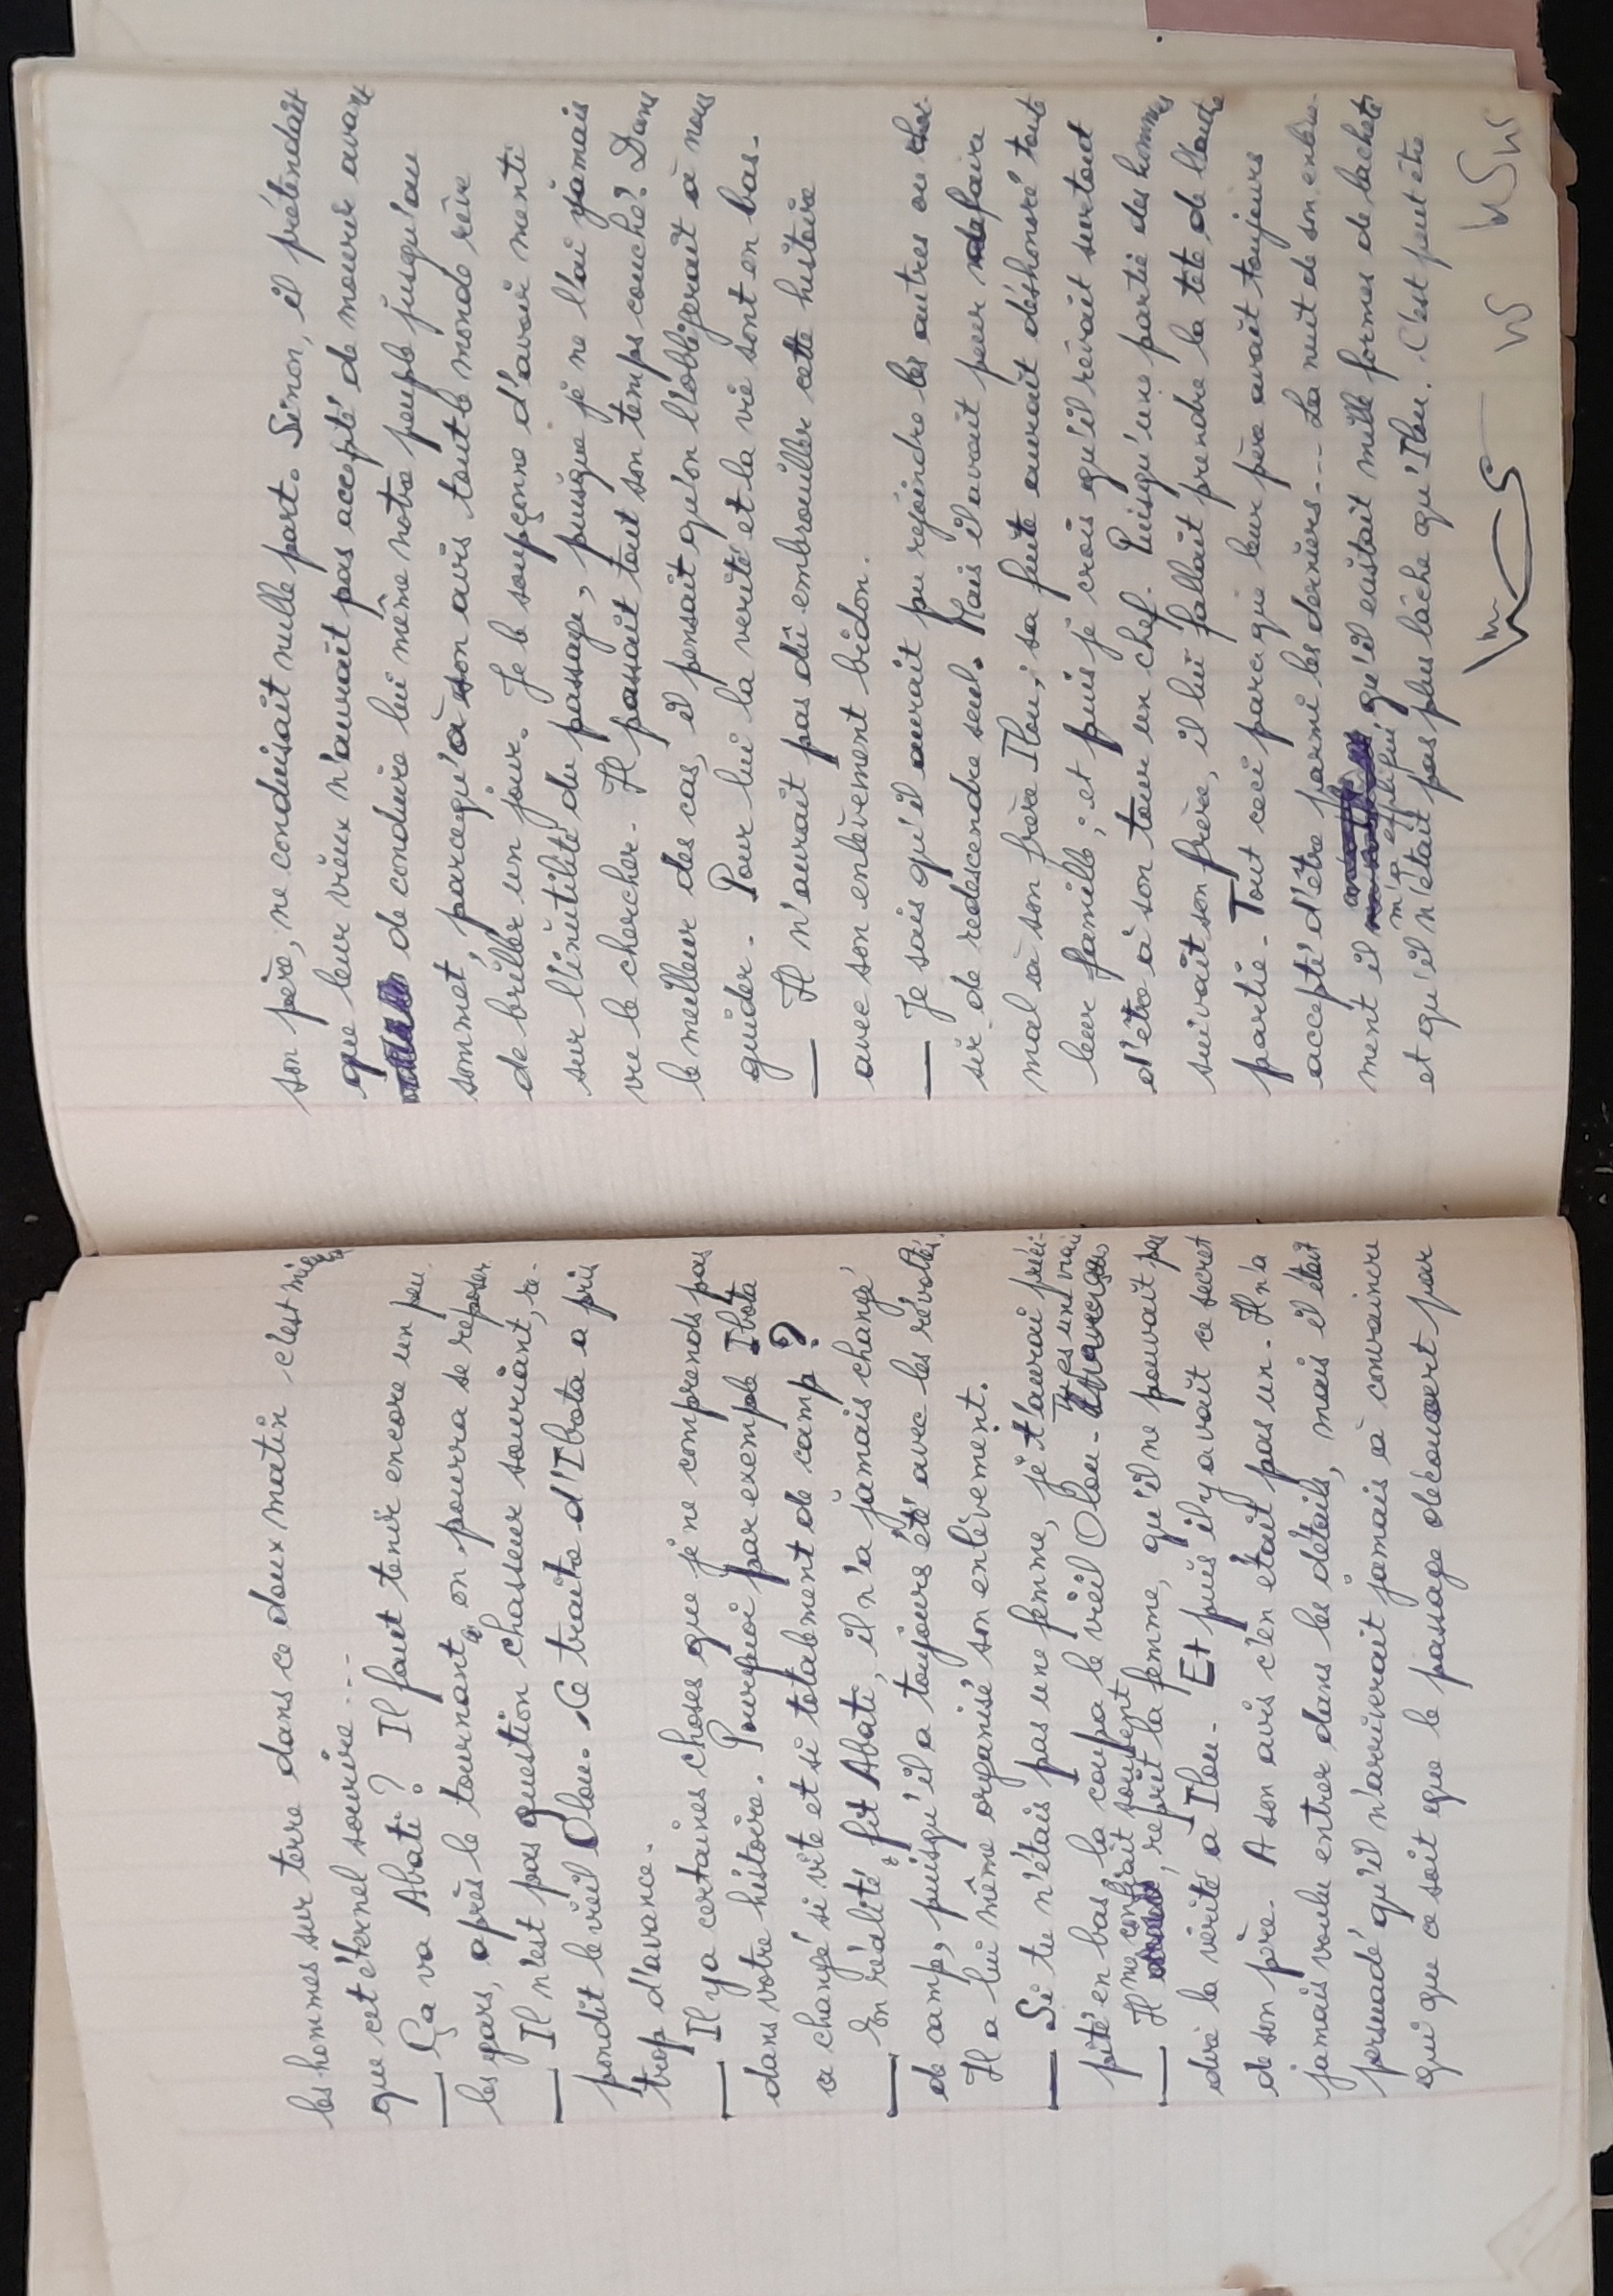 les hommes sur terre dans ce doux matin c'est mieux
que cet éternel sourire...
— Ça va Abati ? Il faut tenir encore un peu
les gars, après le tournant on pourra se reposer.
— Il n'est pas question chasseur souriant, ré-
pondit le vieil Olou. Ce traite d'Ibota a pris
trop d'avance.
— Il y a certaines choses que je ne comprends pas
dans votre histoire. Pourquoi par exemple Ibota
a changé si vite et si totalement de camp ?
— En réalité, fit Abati, il n'a jamais changé
de camp, puisqu'il a toujours été avec les révoltés.
Il a lui même organisé son enlèvement.
— Si tu n'étais pas une femme, je t'aurai préci-
pité en bas, la coupa le vieil Olou. Tu es une vraie
— Il me confiait souvent
, reprit la femme, qu'il ne pouvait pas
dire la vérité à Ilou. Et puis il y avait ce secret
de son père. A son avis c'en était pas un. Il n'a
jamais voulu entrer dans les détails, mais il était
persuadé qu'il n'arriverait jamais à convaincre
qui que ce soit que le passage découvert par
son père, ne conduisait nulle part. Sinon, il prétendait
que leur vieux n'aurait pas accepté de mourir avant
de conduire lui même notre peuple jusqu'au
sommet, parcequ'à son avis tout le monde rêve
de briller un jour. Je le soupçonne d'avoir menti
sur l'inutilité du passage, puisque je ne l'ai jamais
vu le chercher. Il passait tout son temps couché? Dans
le meilleur des cas, il pensait qu'on l'obligerait à nous
guider. Pour lui la verité et la vie sont en bas.
— Il n'aurait pas dû embrouiller cette histoire
avec son enlèvement bidon.
— Je sais qu'il aurait pu rejoindre les autres ou choi-
sir de redescendre seul. Mais il avait peur de faire
mal à son frère Ilou, sa fuite aurait déshonoré toute
leur famille ; et puis je crois qu'il rêvait surtout
d'être à son tour un chef. Puisqu'une partie des hommes
suivait son frère, il lui fallait prendre la tête de l'autre
partie. Tout ceci parce que leur père avait toujours
accepté d'être parmi les derniers... La nuit de son enlève-
ment il m'a expliqué qu'il existait mille formes de lacheté
et qu'il n'était pas plus lâche qu'Ilou. C'est peut être